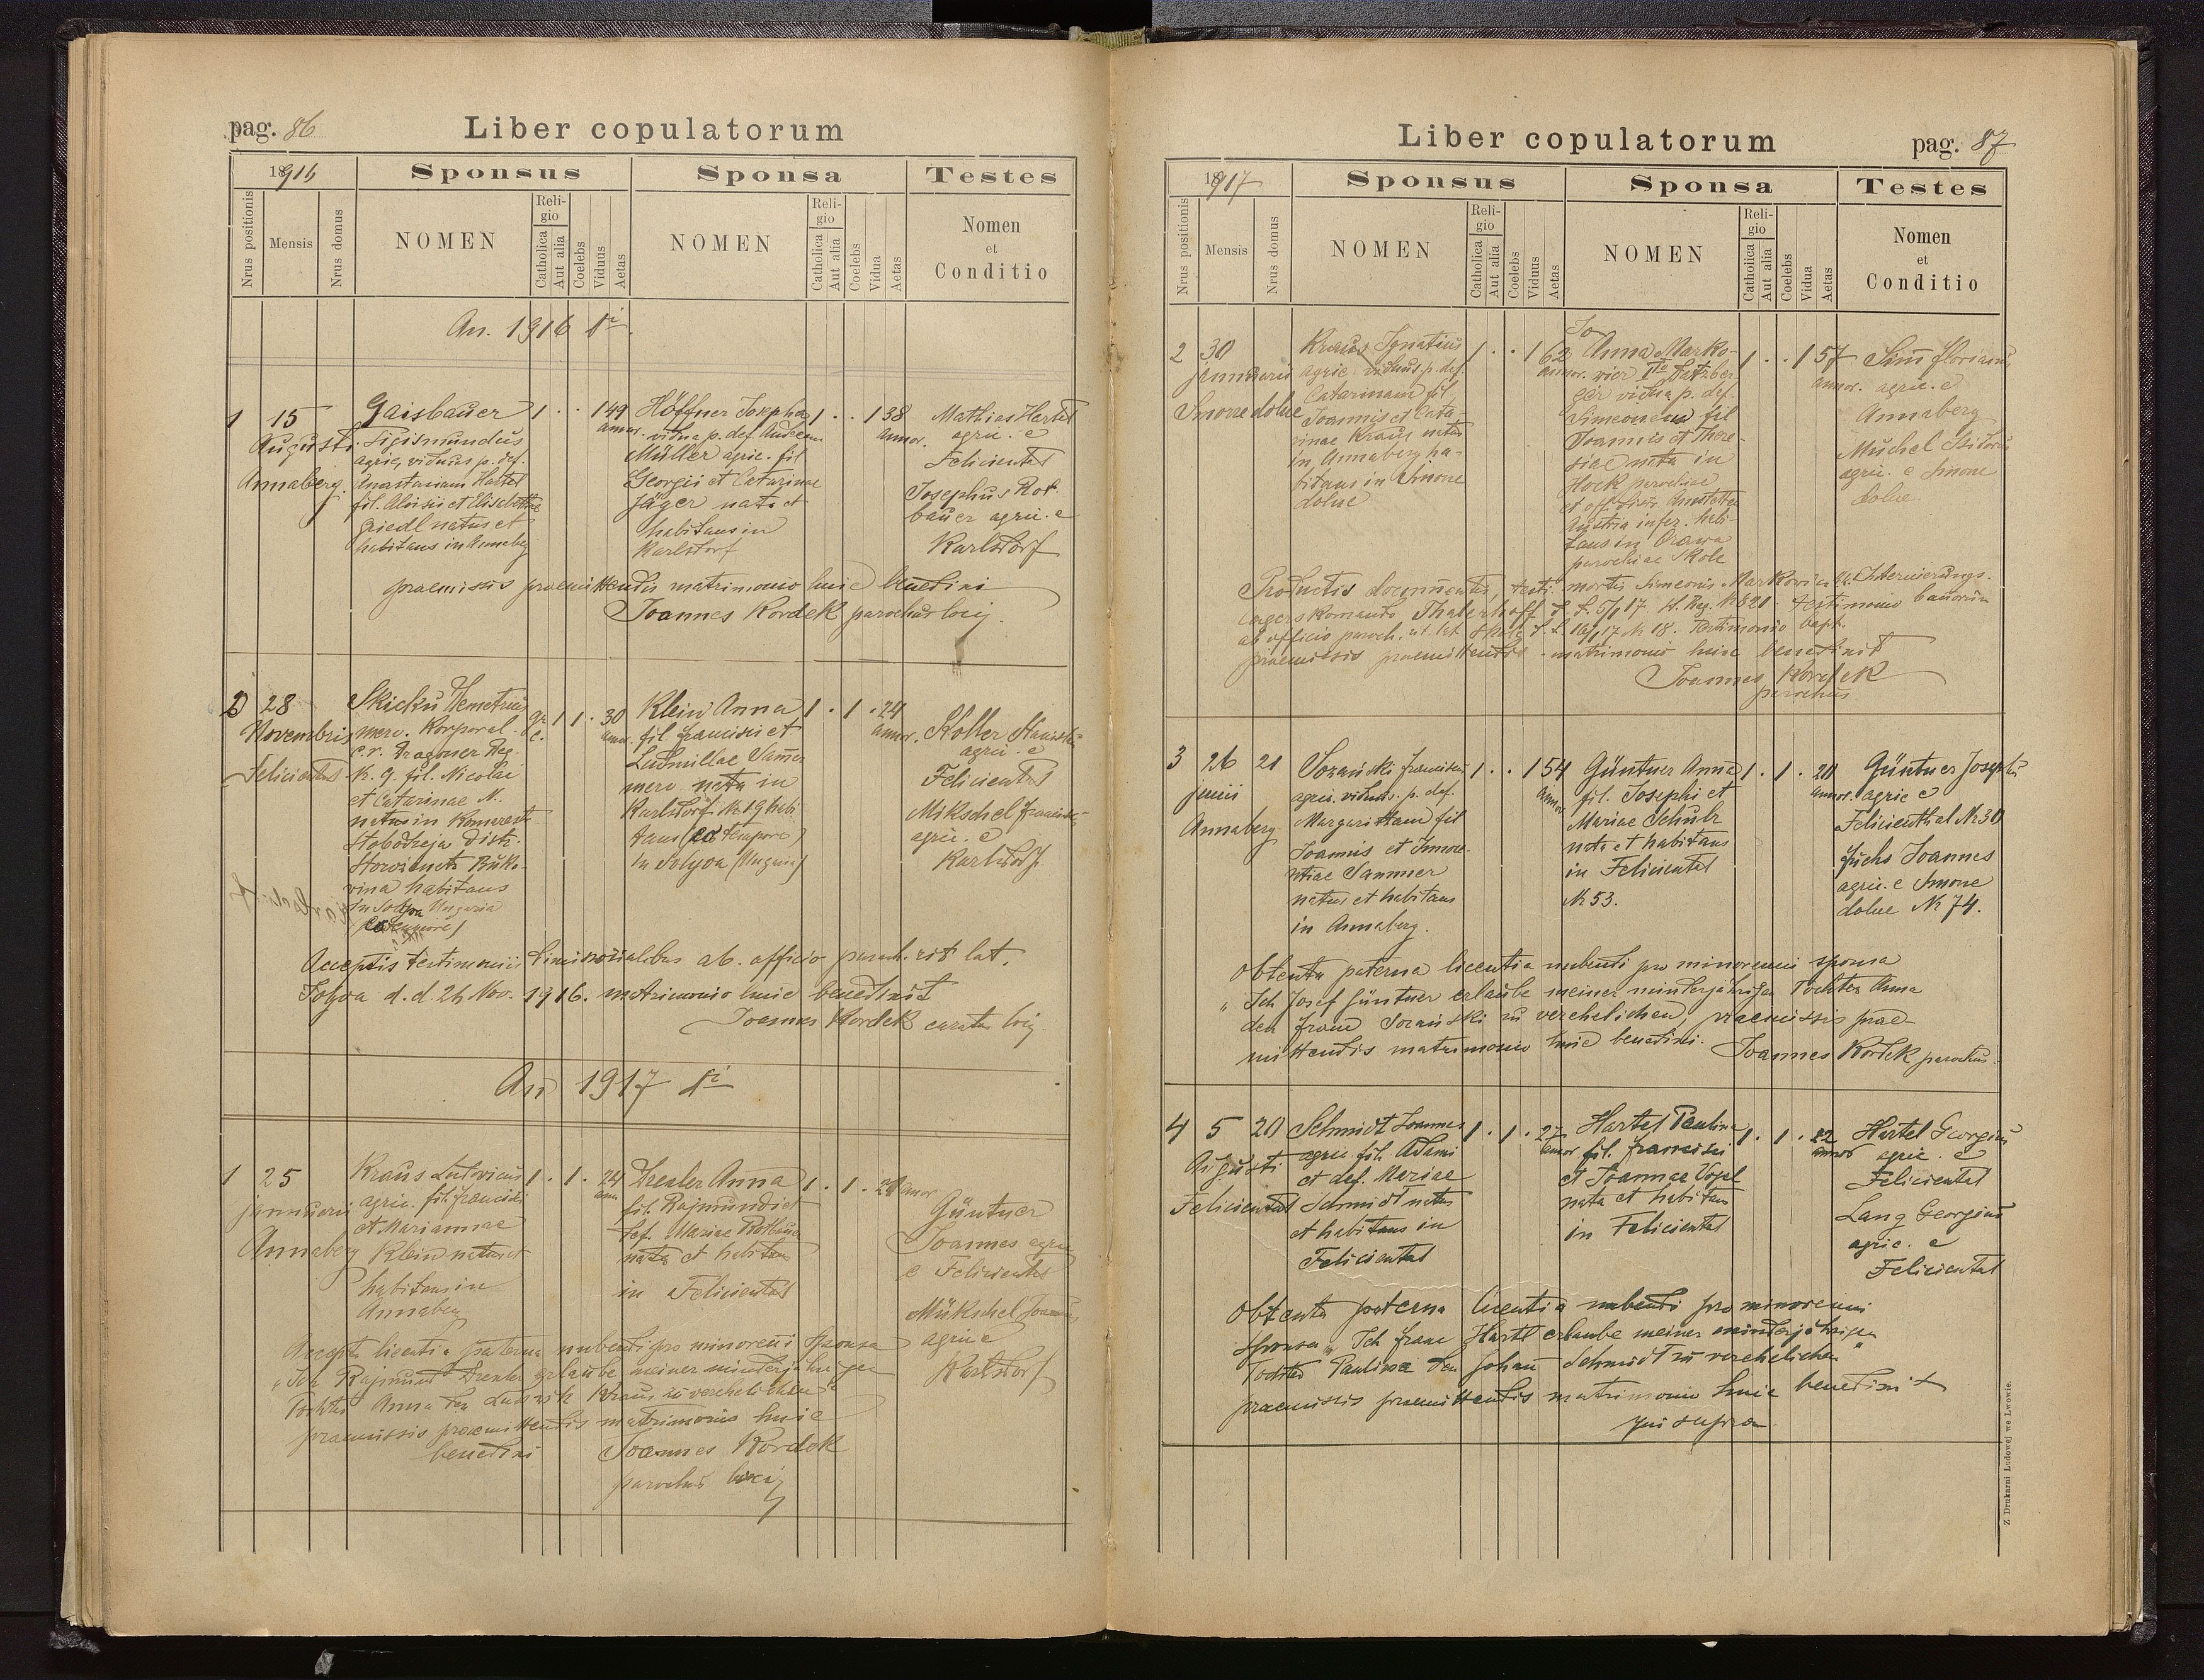 pag. 86
Liber copulatorum
1916
Sponsus
Sponsa
Testes
Nrus positionis
Mensis
Nrus domus
NOMEN
Religio
Catholica
Aut alia
Coelebs
Viduus
Aetas
NOMEN
Religio
Catholica
Aut alia
Coelebs
Vidua
Aetas
Nomen
et
Conditio
An. 1916 
1 15
Augusti
Annaberg.
Gaisbauer
Sigismundus
agric, viduus p. def.
Anastasiam Hartel
fil. Aloisii et Elisabethae
Riedl natus et
habitans in Annaberg
1 . . 1 49
annor.
Höffner Josepha
vidua p. def. Andream
Müller agric. fil
Georgii et Catarinae
Jäger nata et
habitans in
Karlsdorf
1 . . 1 38
annor.
Mathias Hartel
agric. e
Feliciental
Josephus Rot-
bauer agric. e
Karlsdorf
praemissis praemittendis matrimonio huic benedixi
Joannes Kordek parochus loci.
2 28
Novembris
Feliciental
Skicku Demetrius
merc. Korporal.
c. r. Dragoner Reg.
N. 9. fil. Nicolai
et Catarinae N.
natus in Komaresti
Slobodzeja distr.
Storozenetz Buko-
vina habitans
in Solyva Ungaria
(eo tempore)
gr. c. 1 1 . 30
annor.
Klein Anna
fil. Francisci et
Ludmillae Sammer
merc nata in
Karlsdorf N. 19 habi
tans (eo tempore)
in Solyva (Ungaria)
1 . 1 . 24
annor.
Koller
agric. e
Feliciental
Mikschel
agric. e
Karlsdorf.
Acceptis testimoniis dimissorialibus ab. officio paroch. rit lat.
Solyva d. d. 26 Nov. 1916. matrimonio huic benedixit
Joannes Kordek curatus loci
An 1917 
1 25
januarii
Annaberg
Kraus Ludovicus
agric. fil. Francisci
et Mariannae
Klein natus et
habitans in
Annaberg
1 . 1 . 24
ann
Drexler Anna
fil. Rajmundi et
def. Mariae Rotbauer
nata et habitans
in Feliciental
1 . 1 . 21 annor
Güntner
Joannes agric
e Feliciental
Mükschel Joannes
agric e
Karlsdorf
Accepta licentia paterna nubendi pro minoreni sponsa
„Ich Rajmund Drexler erlaube meiner minderjährigen
Tochter Anna den Ludwik Kraus zu verehelichen“
praemissis praemittendis matrimonio huic
benedixi Joannes Kordek
parochus loci
Liber copulatorum
pag. 87
1917
Sponsus
Sponsa
Testes
Nrus positionis
Mensis
Nrus domus
NOMEN
Religio
Catholica
Aut alia
Coelebs
Viduus
Aetas
NOMEN
Religio
Catholica
Aut alia
Coelebs
Vidua
Aetas
Nomen
et
Conditio
2 30
januarii
Smorze dolne
Kraus Ignatius
agric viduus p. def.
Catarinam fil.
Joannis et Cata-
rinae Kraus natus
in Annaberg ha-
bitans in Smorze
dolne
1 . . 1 62
annor.
Anna Marko-
wicz
vidua p. def.
Simeonem fil
Joannis et There-
siae nata in
Hock parochiae
Austria infer. habi-
tans in Orawa
parochiae Skole
1 . . 1 57
annor.
Simm Florianus
agric. e
Annaberg
Muchel Isidorus
agric. e Smorze
dolne.
Productis documentis, testi. mortis Simeonis Markowicz Internierungs-
lagers Komando Thalerhoff testimonio banorum
ab officio paroch. rit lat. Skole N 18. Testimonio bapt.
praemissis praemittendis matrimonio huic benedixit
Joannes Kordek
parochus
3 26 21
junii
Annaberg
Sozański Franciscus
agric. viduus. p. def.
Margaritham fil
Joannis et Innoce-
ntiae Sammer
natus et habitans
in Annaberg.
1 . . 1 54
annor
Güntner Anna
fil. Josephi et
Mariae Schulz
nata et habitans
in Feliciental
N. 53.
1 . 1 . 20
annor.
Güntner Josephus
agric e
Felicienthal N. 30
Fuchs Joannes
agric. e Smorze
dolne N. 74.
Obtenta paterna licentia nubendi pro minoreni sponsa
„Ich Josef Güntner erlaube meiner minderjährigen Tochter Anna
den Franz Sozański zu verehelichen, praemissis prae-
mittendis matrimonio huic benedixi. Joannes Kordek parochus.
4 5 20
Augusti
Feliciental
Schmidt Joannes
agric. fil. Adami
et def. Mariae
Schmidt natus
et habitans in
Feliciental
1 . 1 . 27
annor
Hartel Paulina
fil. Francisci
et Joannae Vogel
nata et habitans
in Feliciental
1 . 1 . 22
annor
Hartel Georgius
agric. e
Feliciental
Lang Georgius
agric. e
Feliciental
Obtenta paterna licentia nubendi pro minoreni
sponsa „Ich Franz Hartl erlaube meiner minderjährigen
Tochter Paulina den Johan Schmidt zu verehelichen“
praemissis praemittendis matrimonio huic benedixit
qui supra
Z Drukarni Ludowej we Lwowie.